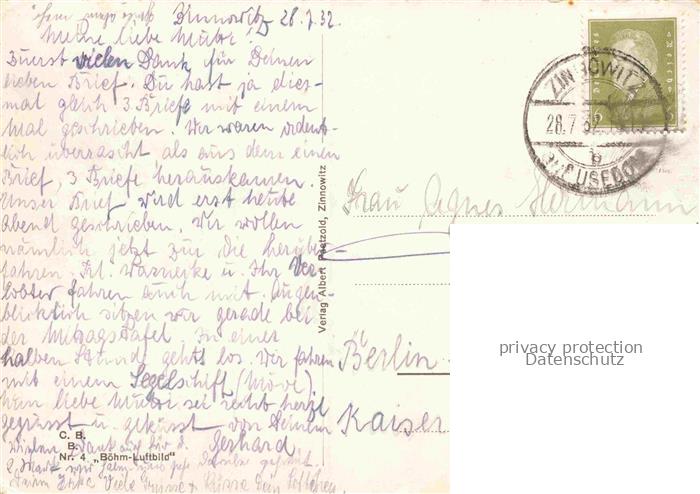 Zinnowitz 28.7.32.
Meine liebe Mutti!
Zuerst vielen Dank für Deinen
lieben Brief. Du hast ja dies-
mal gleich 3 Briefe mit einem
Mal geschrieben. Wir waren ordent-
lich überrascht als aus dem einen
Brief, 3 Briefe herauskamen.
Unser Brief wird erst heute
Abend geschrieben. Wir wollen
nämlich jetzt zur die
fahren. Frl. u. Ihr Ver-
lobter fahren auch mit. Augen-
blicklich sitzen wir gerade bei
der Mittagstafel. In einer
halben Stunde gehts los. Wir fahren
mit einem Segelschiff (Möve).
Nun liebe Mutti sei recht herzl.
gegrüsst u. geküsst von Deinem
Gerhard
Vielen Dank auch für d.
2 Mark wir haben uns sehr darüber gefreut.
Viele Grüsse + Küsse Dein
C. B.
B.
Nr. 4 „Böhm-Luftbild"
Verlag Albert Paetzold, Zinnowitz
ZINNOWITZ
28.7.32
b
USEDOM
Frau Agnes Hermann
Berlin-
Kaiser
privacy protection
Datenschutz